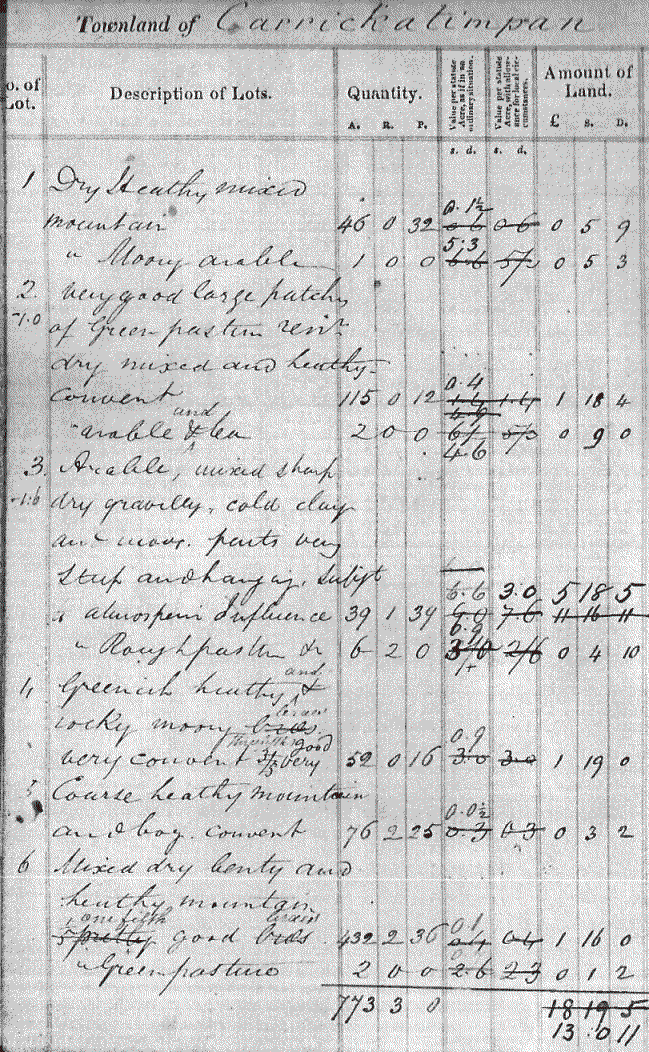 Townland of Carrickatimpan
o. of Lot. Description of Lots. Quantity. Value per statute Acre, as if in an ordinary situation. Value per statute Acre, with allowance for local circumstances. Amount of Land.
A. R. P. s. d. s. d. £ s. D.
1 Dry Heathy mixed
0.1½
mountain 46 0 32 0 6 0 6 0 5 9
5.3
" Moory arable 1 0 0 6 6 5/ 0 5 3
2. very good large patchs
-1.0 of Green pasture
dry mixed and heathy
0.4
convent 115 0 12 1 4 1 4 1 18 4
and 4 6
arable & lea 2 0 0 6/ 5/ 0 9 0
4 6
3. Arable, mixed sharp
-1.6 dry gravilly, cold clay
and moor. parts very
steep and hanging, subjt
6.6 3.0 5 18 5
to atmospern Influence 39 1 39 6 0 7 6 11 16 11
" Rough pasture 6 2 0 2/6 0 4 10
4 Greenish heathy and &
rocky moory
0.9
very convent very good 52 0 16 3 0 3 0 1 19 0
5 Coarse heathy mountain
0.0½
and bog. convent 76 2 25 0.3 0 3 0 3 2
6 Mixed dry benty and
heathy mountain
one fifth 0 1
pretty good 432 2 36 0 4 0 4 1 16 0
" Green pasture 2 0 0 2 6 2 3 0 1 2
773 3 0 18 19 5
13 0 11